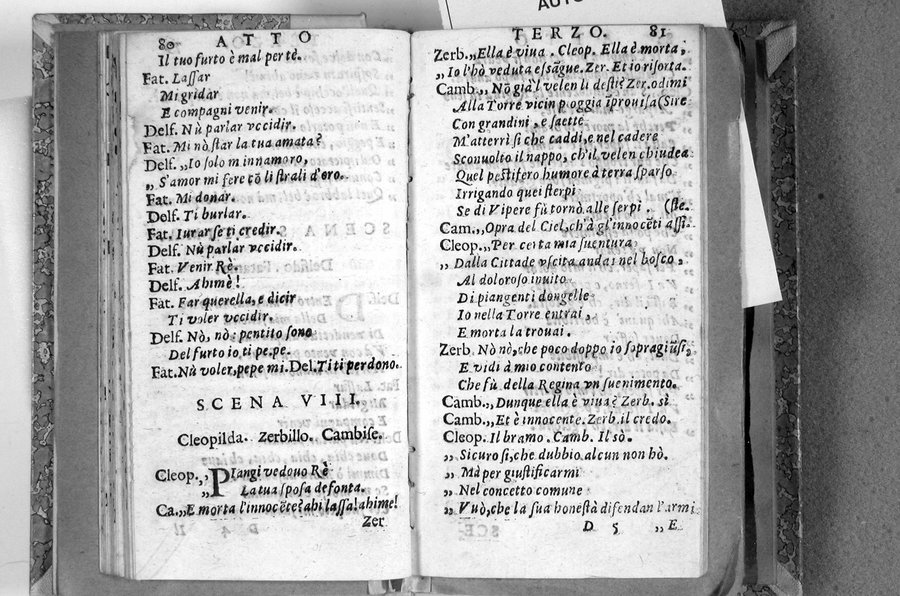 AUTO
80 ATTO
Il tuo furto è mal per tè.
Fat. Lassar
Mi gridar
E compagni venir.
Delf. Nù parlar vccidir.
Fat. Mi nò star la tua amata?
Delf. „Io solo m innamoro,
„ S'amor mi fere cō li strali d'oro.
Fat. Mi donar.
Delf. Ti burlar.
Fat. Iurar se ti credir.
Delf. Nù parlar vccidir.
Fat. Venir Rè.
Delf. Ahimè!
Fat. Far querella, e dicir
Ti voler vccidir.
Delf. Nò, nò; pentito sono
Del furto io, ti pe, pe.
Fat. Nù voler, pepe mi. Del. Ti ti perdono.
SCENA VIII.
Cleopilda. Zerbillo. Cambise.
Cleop. „PIangi vedouo Rè
„ La tua sposa defonta.
Ca. „E morta l'innocēte? ahi lassa! ahime!
Zer
TERZO. 81
Zerb. „Ella è viua. Cleop. Ella è morta,
„ Io l'hò veduta essāgue. Zer. Et io risorta.
Camb. „ Nō già'l velen li destic Zer. odimi
Alla Torre vicin pioggia īprouisa (Sire
Con grandini, e saette
M'atterrì si che caddi, e nel cadere
Sconuolto il nappo, ch'il velen chiudea
Quel pestifero humore à terra sparso
Irrigando quei sterpi
Se di Vipere fù tornò alle serpi. (ste.
Cam. „Opra del Ciel, ch'à gl'innocēti assi-
Cleop. „Per certa mia suentura
„ Dalla Cittade vscita andai nel bosco,
Al doloroso inuito
Di piangenti dongelle
Io nella Torre entrai,
E morta la trouai.
Zerb. Nò nò, che poco doppo io sopragiūsi,
E vidi à mio contento
Che fù della Regina vn suenimento.
Camb. „Dunque ella è viua? Zerb. sì
Camb. „Et è innocente. Zerb. il credo.
Cleop. Il bramo. Camb. Il sò.
„ Sicuro si, che dubbio alcun non hò.
„ Mà per giustificarmi
„ Nel concetto comune
„ Vuò, che la sua honestà difendan l'armi
D 5 „E